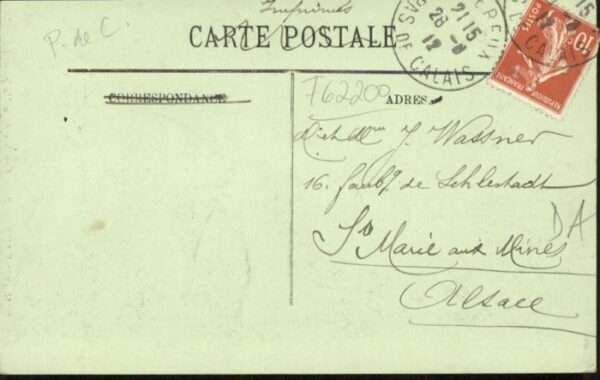 Imprimés
P. de C.
CARTE POSTALE
PAS DE CALAIS
21 15
28 -8
12
10
POSTES
CORRESPONDANCE
ADRESSE
F62209
J. Wassner
16. faubg. de Schlestadt
DA
Ste Marie aux Mines
Alsace